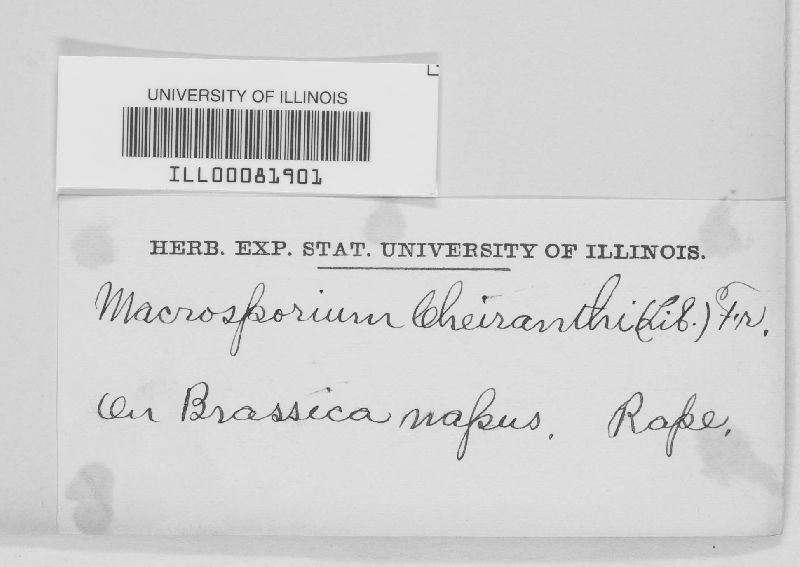 UNIVERSITY OF ILLINOIS
ILL00081901
HERB. EXP. STAT. UNIVERSITY OF ILLINOIS.
Macrosporium Cheiranthi (Lib.) Fr.
On Brassica napus. Rape.